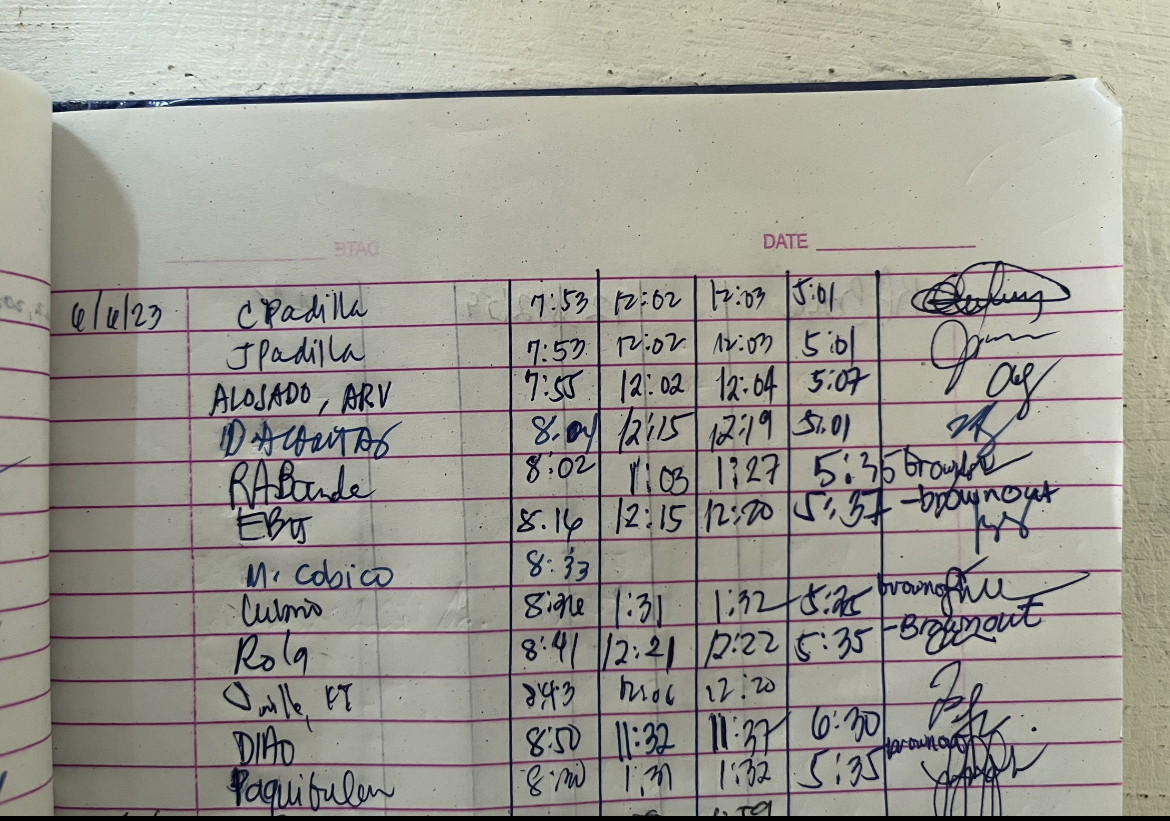 DATE
6/6/23 C Padilla 7:53 12:02 12:03 5:01
J Padilla 7:53 12:02 12:03 5:01
ALOSADO, ARV 7:55 12:02 12:04 5:07
8:04 12:15 12:19 5:01
RABande 8:02 1:03 1:27 5:35 brownout
EBJ 8:14 12:15 12:20 5:37 -brownout
M. Cobico 8:33
1:31 1:32 brownout
Rola 8:41 12:21 12:22 5:35 -Brownout
8:43 12:06 12:20
DIAO 8:50 11:32 11:37 6:30
Paquibulan 1:31 1:32 5:35 brownout